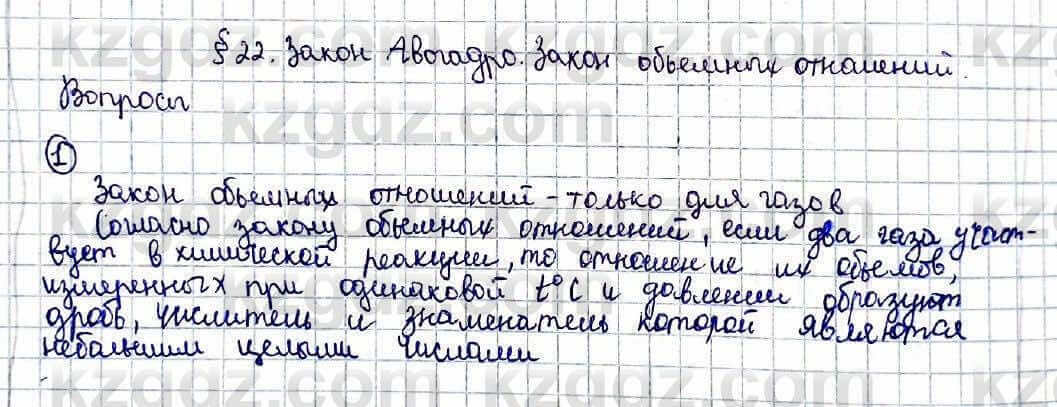 § 22. Закон Авогадро. Закон объемных отношений.
Вопросы
1
Закон объемных отношений - только для газов
Согласно закону объемных отношений, если два газа участ-
вует в химической реакции, то отношение их объемов,
измеренных при одинаковой t°C и давлении образуют
дробь, числитель и знаменатель которой являются
небольшими целыми числами
kzgdz.com